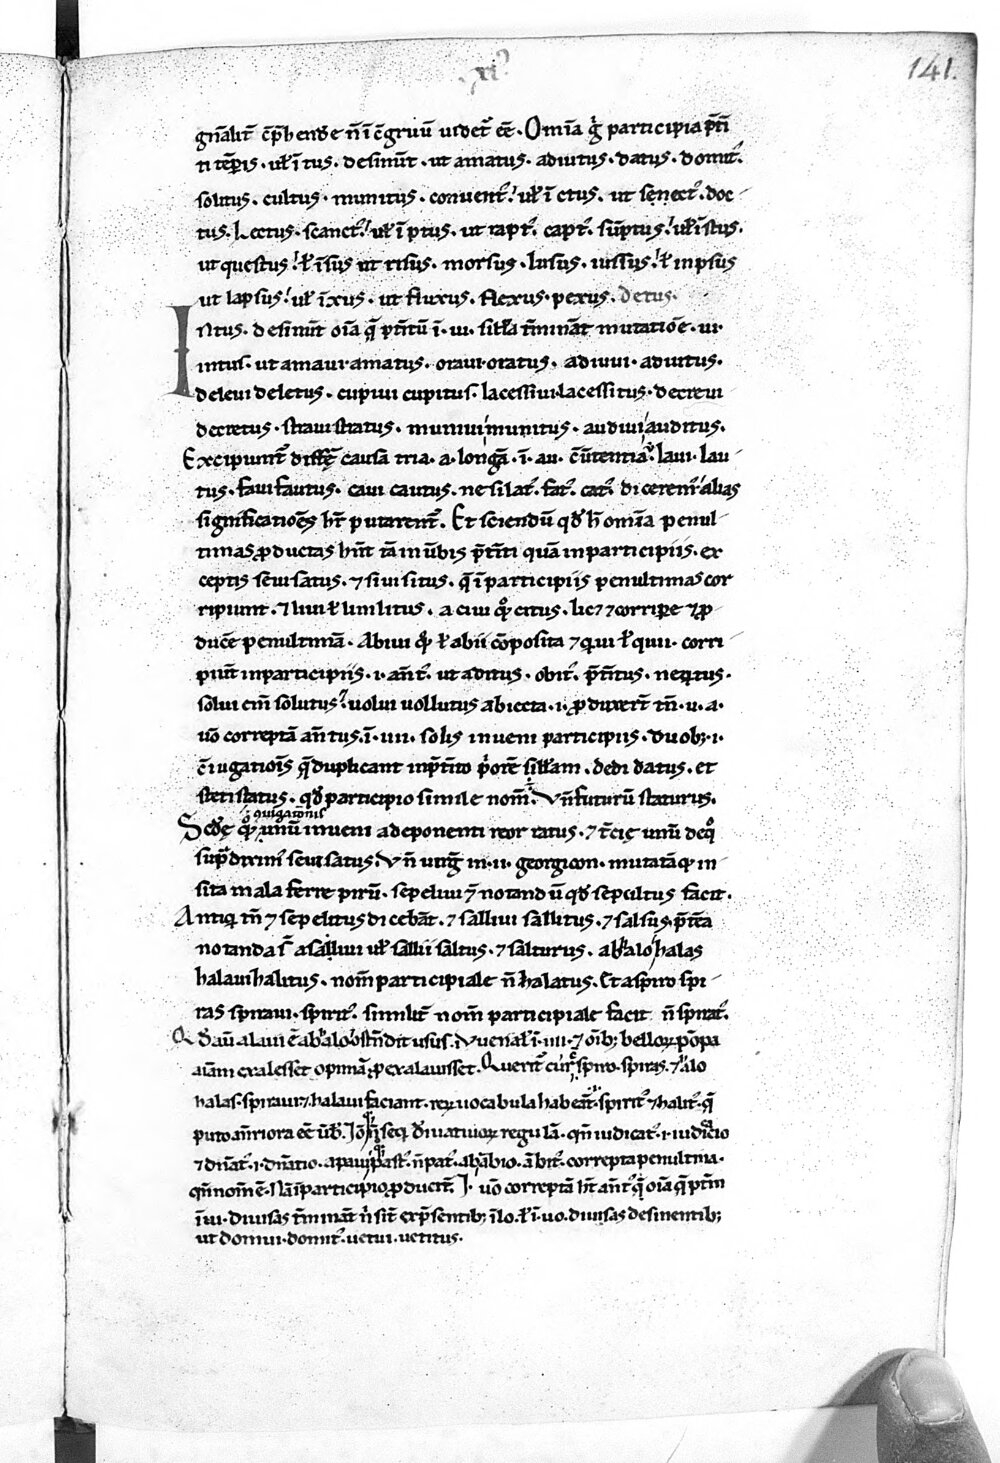 xi
141.
gn̄alit̄ c̄p̄hendere n̄ ī c̄gruū uidet᷑ ēē. Om̄ia ḡ participia p̄t̄i
ti tēp̄ris. ul̄ ī tus. desinūt. ut amatus. adiutus. datus. domit᷑.
solutus. cultus. munitus. conuent᷑. ul̄ ī ctus. ut senect᷑. doc-
tus. Lectus. scanct᷑. ul̄ ī ptus. ut rapt᷑. capt᷑. sūptus. ul̄ ī stus.
ut questus. ł ī sus ut risus. morsus. lusus. iussus. ł in psus
ut lapsus. ul̄ ī xus. ut fluxus. flexus. pexus.
Intus. desinūt oīa q̄ p̄t̄itū ī. ui. sill̄a t̄mināt mutatiōe. ui.
in tus. ut amaui amatus. oraui oratus. adiuui. adiutus.
deleui deletus. cupiui cupitus. lacessiui. lacessitus. decreui
decretus. straui stratus. muniui munitus. audiui auditus.
Excipiunt᷑ diffēr̄ causa tria. a. longā. ī. au. c̄ūtentia. laui. lau-
tus. faui fautus. caui cautus. ne si lat᷑. fat᷑. cat᷑. dicerent᷑ alias
significatiōes hr̄e putarent᷑. Et sciendū qđ h̄ om̄ia penul-
timas ꝓductas hn̄t tā in ūbis p̄t̄iti quā in participiis. ex
ceptis seui satus. ⁊ siui situs. q̄ ī participiis penultimas cor
ripiunt. ⁊ liui ł lini litus. a ciui qͦꝗ citus. lic̄ ⁊ corripe ⁊ ꝓ
ducē penultimā. Abiui qͦꝗ ł abii cōposita ⁊ qui ł quii. corri
piūt in participiis. i. an̄ t᷑. ut aditus. obit᷑. p̄t̄itus. neqtus.
solui em̄ solutus. uolui uollutus abiecta. i. ꝓduxer̄t tn̄. u. a.
uō correptā an̄ tus. ī. iiii. solis inueni participiis. duob; i.
c̄iugatiōīs q̄ duplicant in p̄t̄ito p̄orē sill̄am. dedi datus. et
steti status. qđ participio simile nom̄. Vn̄ futurū staturus.
ꝗiugationis
Scđe qͦꝗ unū inueni a deponenti reor ratus. ⁊ t̄cię unū de qͦ
sup̄ diximꝰ seui satus. Vn̄ uirḡ in. ii. georgicon. mutatāq in-
sita mala ferre pirū. sepeliui ēt̄ notandū qđ sepultus facit.
Antiqi tn̄ ⁊ sepelitus dicebāt. ⁊ salliui sallitus. ⁊ salsus. p̄t̄ea
notanda st̄ a salliui ul̄ sallii saltus. ⁊ salturus. ab halo halas
halaui halitus. nom̄ participiale n̄ halatus. Et a spiro spi-
ras spiraui. spirit᷑. similit̄ nom̄ participiale facit n̄ spirat᷑.
Qđ aū alaui ē ab halo ostn̄dit usus. Iuuenal̄ ī. iiii. ⁊ oīb; belloꝝ pōpa
aīam exalesset opimā ꝓ exalauisset. Querit᷑ cur spiro. spiras. ⁊ alo
halas. spiraui ⁊ halaui faciant. uocabula habeāt. spirit᷑ ⁊ halit᷑. q̄
puto an̄riora ēē ūb̄. seq̄ diuatiuoꝝ regulā. qn̄ iudicat᷑. i. iudicio
⁊ dn̄at᷑. i. dn̄atio. a paui past᷑. n̄ pat᷑. ab ābio. ābit᷑. correpta penultima.
qn̄ nom̄ ē. Nā ī participio ꝓducit᷑. I. uō correptā hn̄t an̄ t᷑ oīa q̄ p̄t̄m
ī ui. diuisas t̄minat̄ n̄ sit̄ ex p̄sentib; ī lo. ł ī. uo. diuisas desinentib;
ut domui. domit᷑. uetui. uetitus.